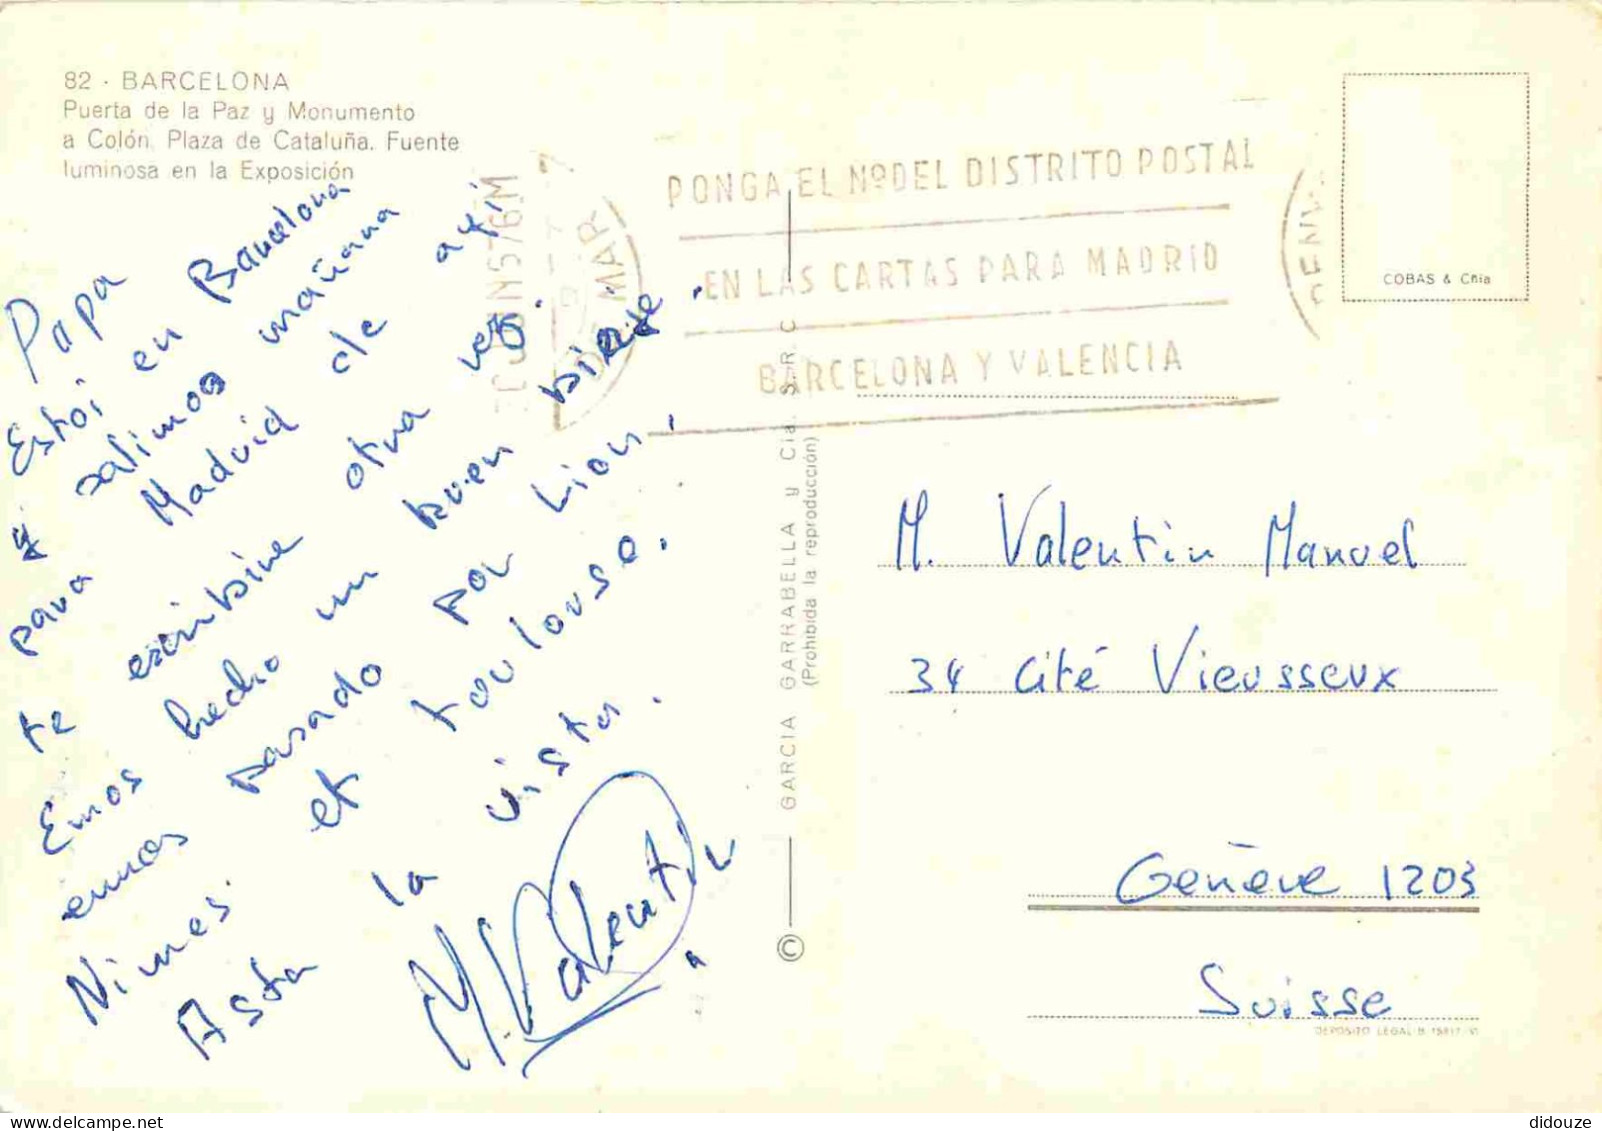 82 - BARCELONA
Puerta de la Paz y Monumento
a Colón. Plaza de Cataluña. Fuente
luminosa en la Exposición
Papa
Estoi en Barcelona
y salimos mañana
para Madrid de aqi
te escribire otra vez.
Emos hecho un buen biaje.
emos pasado por Lion,
Nimes et toulouse.
Asta la vista.
M. Valentin
PONGA EL Nº DEL DISTRITO POSTAL
EN LAS CARTAS PARA MADRID
BARCELONA Y VALENCIA
DE MAR
COBAS & Cñia
© GARCIA GARRABELLA y Cía. S. R. C.
(Prohibida la reproducción)
M. Valentin Manuel
34 Cité Vieusseux
Genève 1203
Suisse
DEPOSITO LEGAL B. 15817-VI
didouze